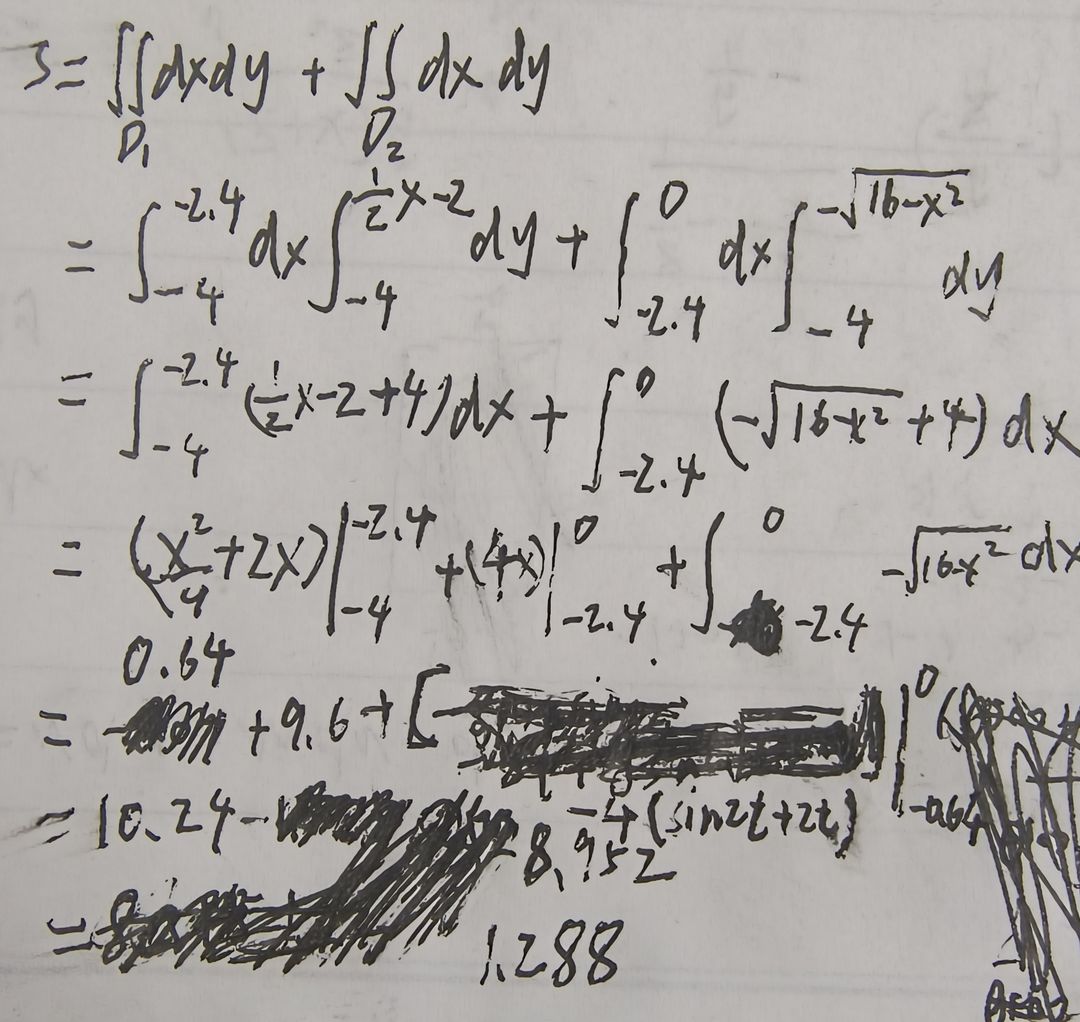 S = ∬_{D₁} dxdy + ∬_{D₂} dx dy
= ∫_{-4}^{-2.4} dx ∫_{-4}^{½x-2} dy + ∫_{-2.4}^{0} dx ∫_{-4}^{-√(16-x²)} dy
= ∫_{-4}^{-2.4} (½x-2+4) dx + ∫_{-2.4}^{0} (-√(16-x²) +4) dx
= (x²/4 + 2x)|_{-4}^{-2.4} + (4x)|_{-2.4}^{0} + ∫_{-2.4}^{0} -√(16-x²) dx
0.64
= + 9.6 + [ |_{-0.64}^{0}
-4(sin2t+2t)
= 10.24 - 8.952
= 1.288